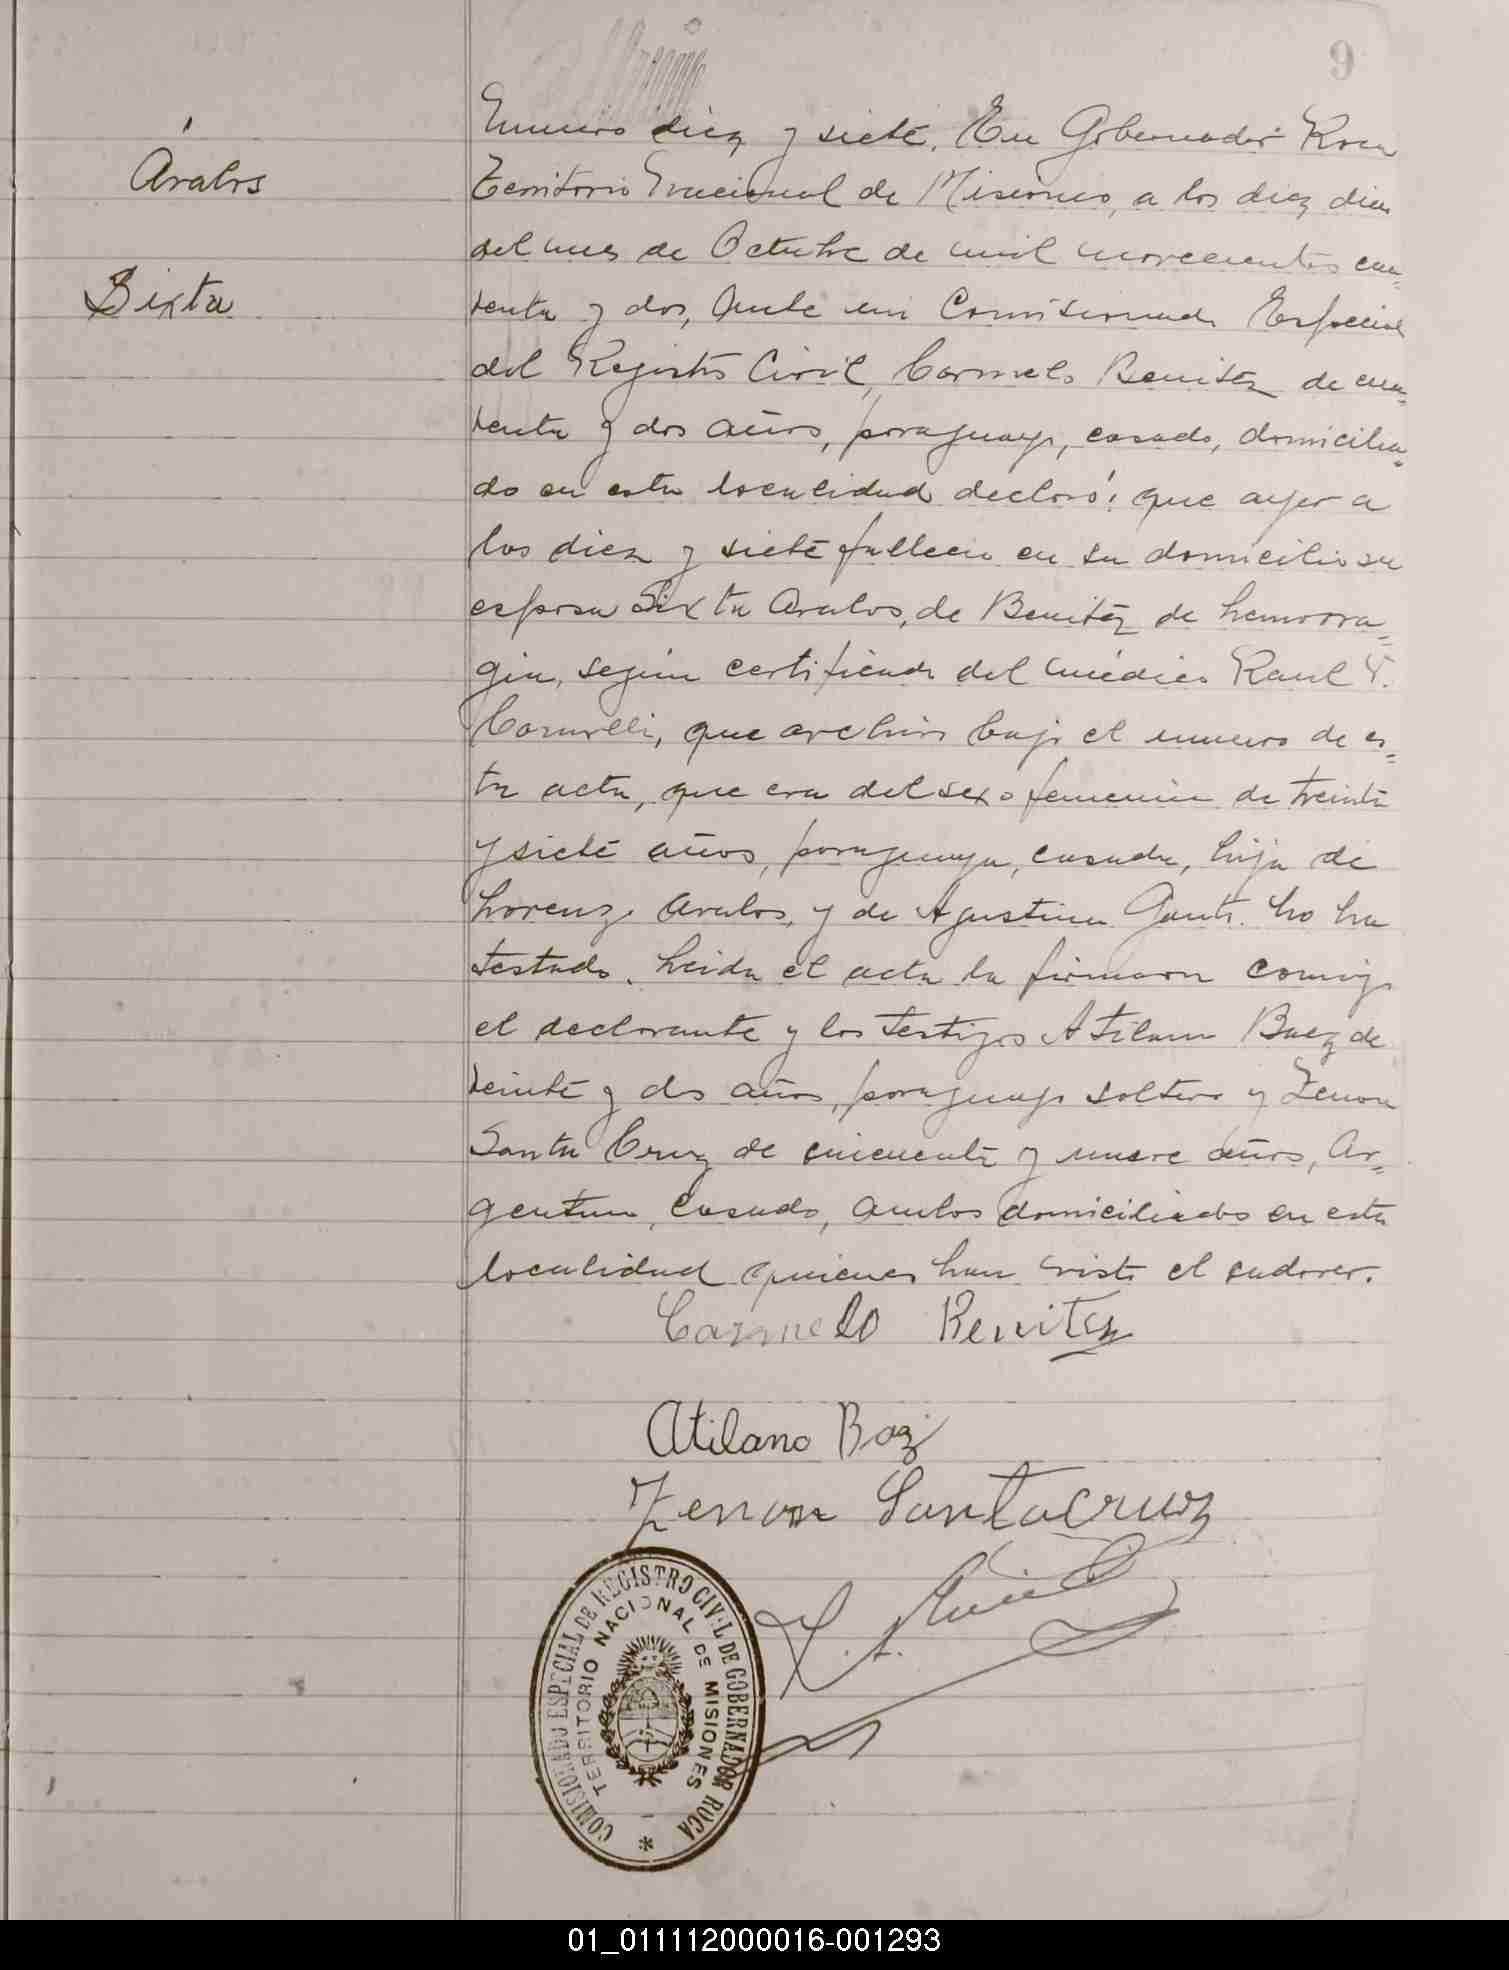 9
Avalos
Sixta
Numero diez y siete. En Gobernador Roca
Territorio Nacional de Misiones, a los diez dias
del mes de Octubre de mil novecientos cua=
renta y dos, Ante mi Comisionado Especial
del Registro Civil, Carmelo Benitez de cua=
renta y dos años, paraguayo, casado, domicilia=
do en esta localidad declaró: que ayer a
las diez y siete fallecio en su domicilio su
esposa Sixta Avalos, de Benitez de hemorra=
gia, segun certificado del médico Raul
que archivo bajo el numero de es=
ta acta, que era del sexo femenino de treinta
y siete años, paraguaya, casada, hija de
Lorenzo Avalos, y de Agustina No ha
testado. Leida el acta la firmaron conmigo
el declarante y los testigos Atilano Baez de
veinte y dos años, paraguayo soltero y Zenon
Santa Cruz de cincuenta y nueve años, Ar=
gentino, casado, ambos domiciliados en esta
localidad quienes han visto el cadaver.
Carmelo Benitez
Atilano Baz
Zenon Santacruz
COMISIONADO ESPECIAL DE REGISTRO CIVIL DE GOBERNADOR ROCA
TERRITORIO NACIONAL DE MISIONES
01_011112000016-001293